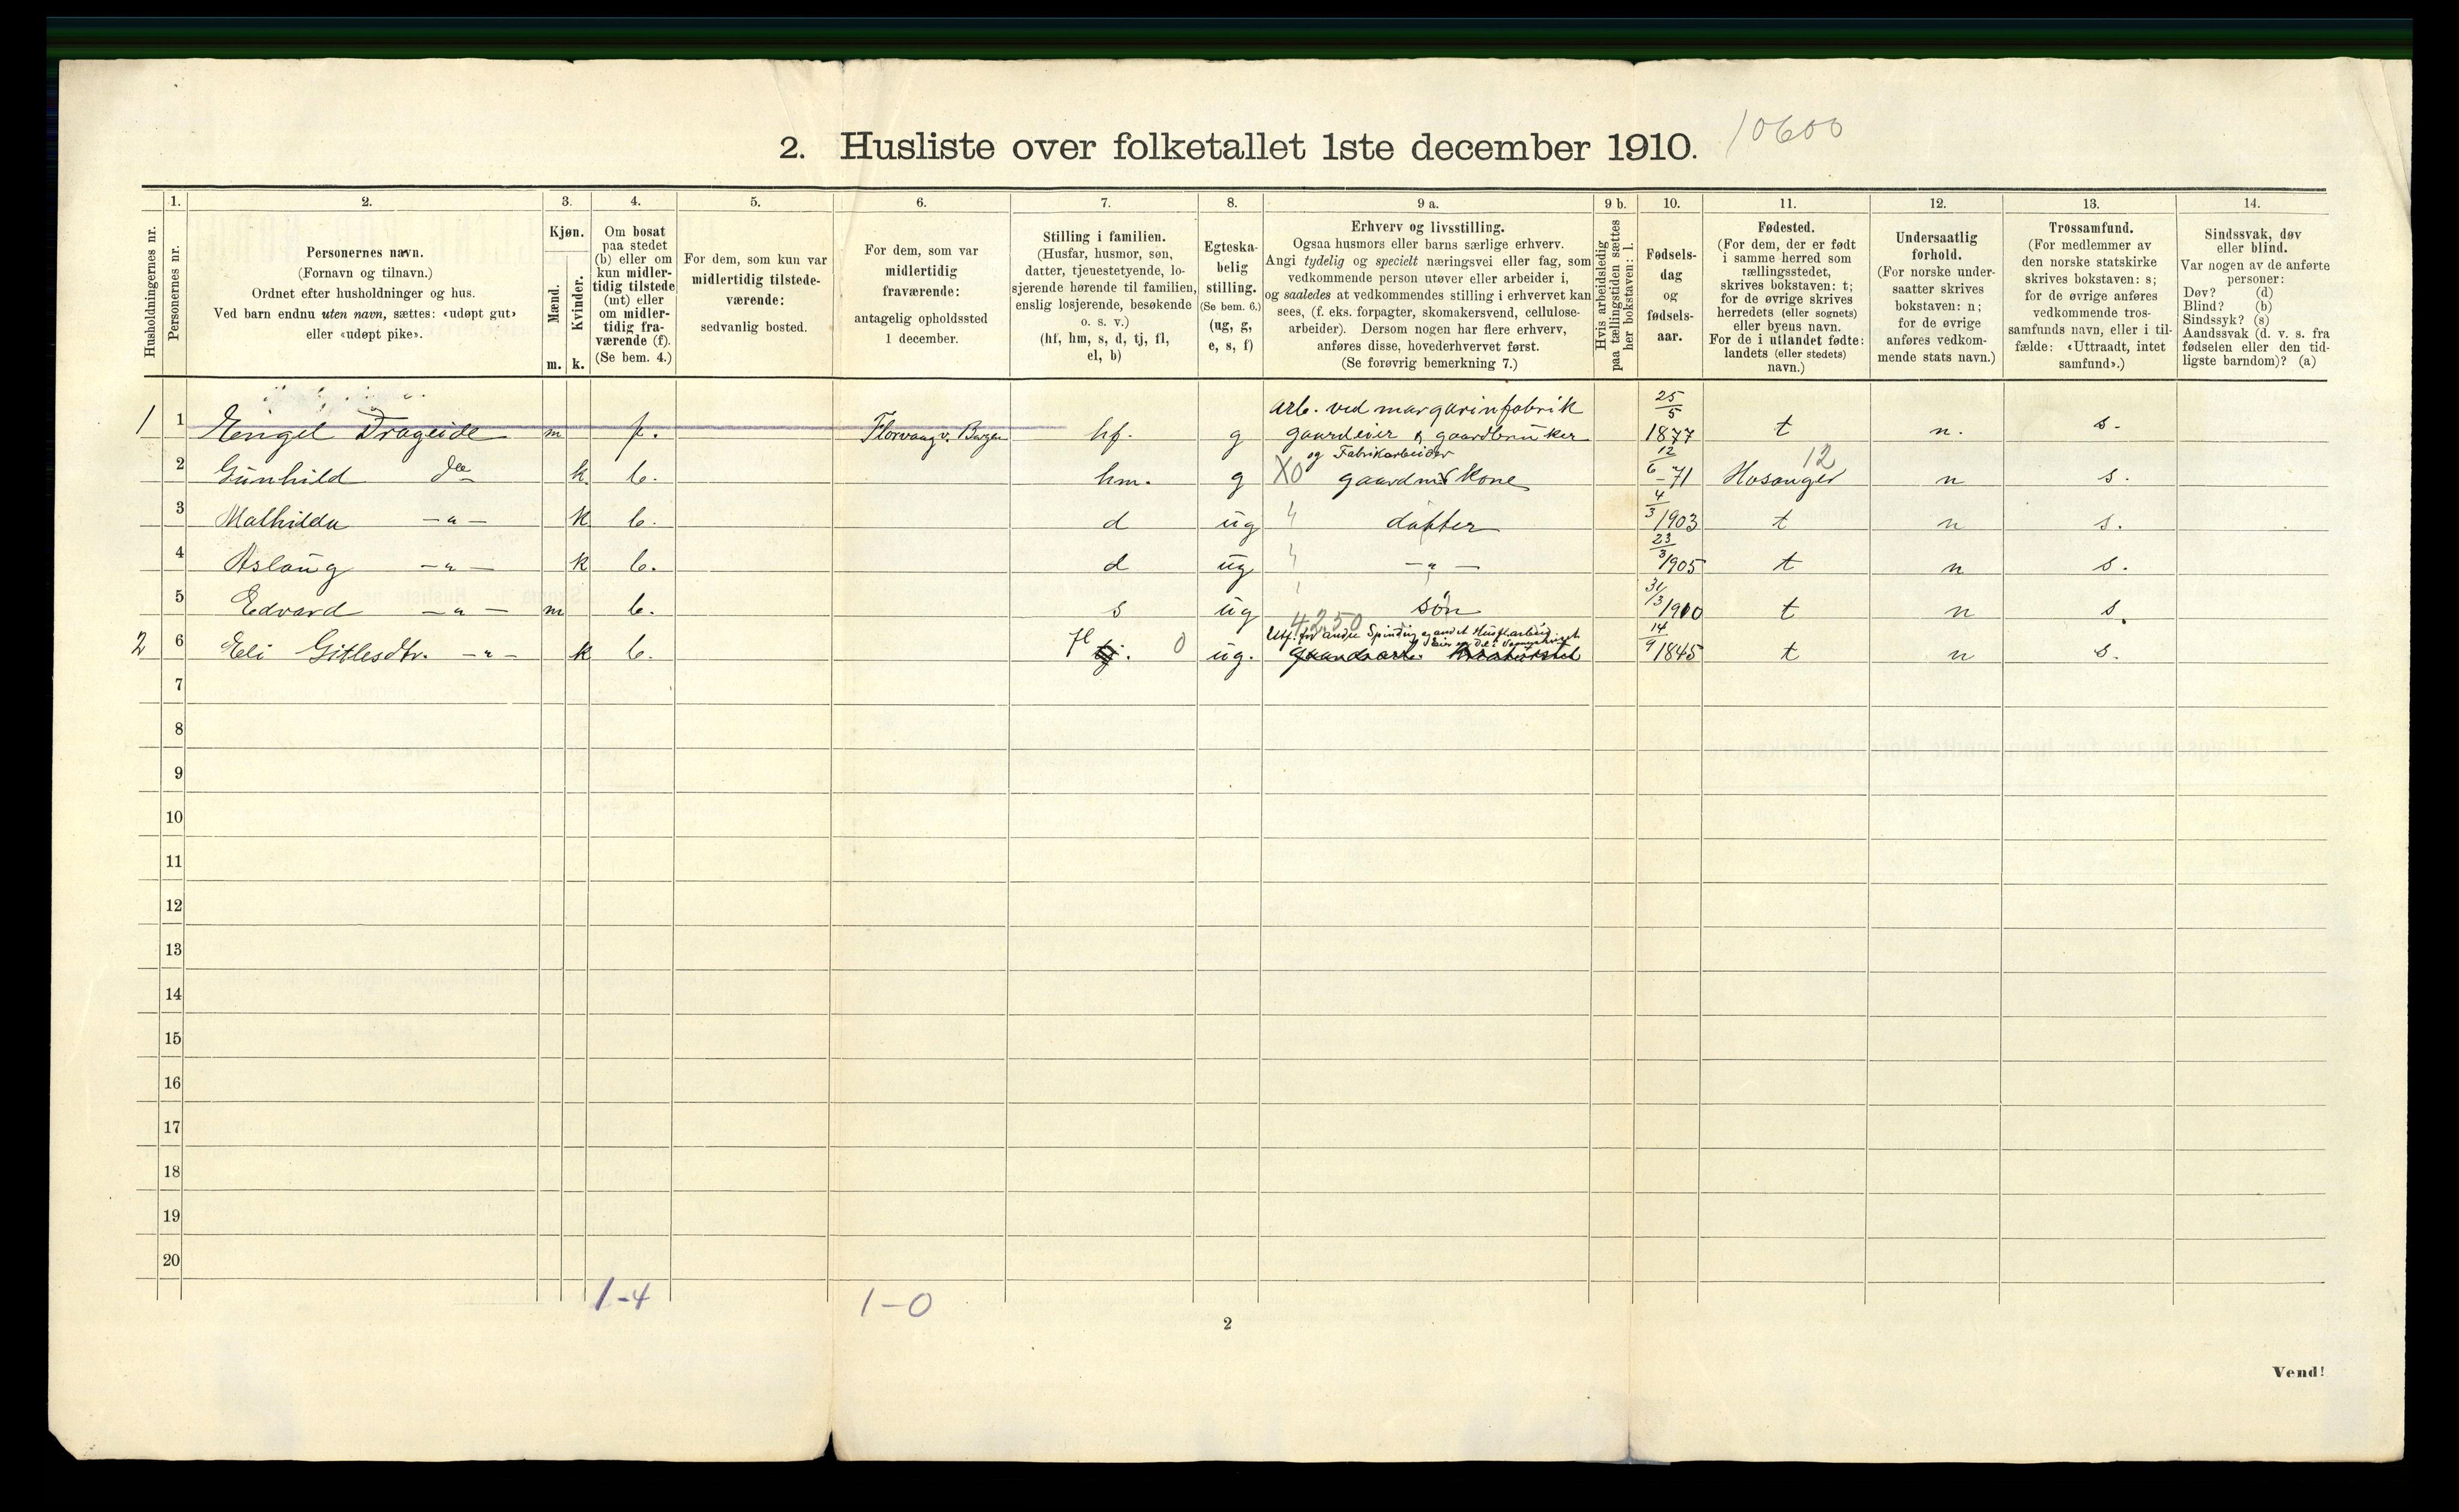 2. Husliste over folketallet 1ste december 1910. 10600
Husholdningernes nr.
1.
Personernes nr.
2.
Personernes navn.
(Fornavn og tilnavn.)
Ordnet efter husholdninger og hus.
Ved barn endnu uten navn, sættes: «udøpt gut»
eller «udøpt pike».
3.
Kjøn.
Mænd.
Kvinder.
m. k.
4.
Om bosat
paa stedet
(b) eller om
kun midler-
tidig tilstede
(mt) eller
om midler-
tidig fra-
værende (f).
(Se bem. 4.)
5.
For dem, som kun var
midlertidig tilstede-
værende:
sedvanlig bosted.
6.
For dem, som var
midlertidig
fraværende:
antagelig opholdssted
1 december.
7.
Stilling i familien.
(Husfar, husmor, søn,
datter, tjenestetyende, lo-
sjerende hørende til familien,
enslig losjerende, besøkende
o. s. v.)
(hf, hm, s, d, tj, fl,
el, b)
8.
Egteska-
belig
stilling.
(Se bem. 6.)
(ug, g,
e, s, f)
9 a.
Erhverv og livsstilling.
Ogsaa husmors eller barns særlige erhverv.
Angi tydelig og specielt næringsvei eller fag, som
vedkommende person utøver eller arbeider i,
og saaledes at vedkommendes stilling i erhvervet kan
sees, (f. eks. forpagter, skomakersvend, cellulose-
arbeider). Dersom nogen har flere erhverv,
anføres disse, hovederhvervet først.
(Se forøvrig bemerkning 7.)
9 b.
Hvis arbeidsledig
paa tællingstiden sættes
her bokstaven: l.
10.
Fødsels-
dag
og
fødsels-
aar.
11.
Fødested.
(For dem, der er født
i samme herred som
tællingsstedet,
skrives bokstaven: t;
for de øvrige skrives
herredets (eller sognets)
eller byens navn.
For de i utlandet fødte:
landets (eller stedets)
navn.)
12.
Undersaatlig
forhold.
(For norske under-
saatter skrives
bokstaven: n;
for de øvrige
anføres vedkom-
mende stats navn.)
13.
Trossamfund.
(For medlemmer av
den norske statskirke
skrives bokstaven: s;
for de øvrige anføres
vedkommende tros-
samfunds navn, eller i til-
fælde: «Uttraadt, intet
samfund».)
14.
Sindssvak, døv
eller blind.
Var nogen av de anførte
personer:
Døv? (d)
Blind? (b)
Sindssyk? (s)
Aandssvak (d. v. s. fra
fødselen eller den tid-
ligste barndom)? (a)
arb. ved margarinfabrik 25/5
1 1 Engel Drageide m f. Florvaag v. Bergen hf. g gaardeier & gaardbruker 1877 t n. s.
og Fabrikarbeider
2 Gunhild do k b. hm. g X0 gaardm kone 12/6 -71 Hosanger 12 n s.
3 Mathilda -"- k b. d ug datter 4/3 1903 t n s.
4 Aslaug -"- k b. d ug -"- 23/3 1905 t n s.
5 Edvard -"- m b. s ug søn 31/3 1910 t n s.
4250
Utf. for andre Spinding og andet Husflarbeid
2 6 Eli Gitlesdtr. -"- k b. fl tj. 0 ug. gaardsarb. 14/9 1845 t n s.
7
8
9
10
11
12
13
14
15
16
17
18
19
20
1-4 1-0
2
Vend!